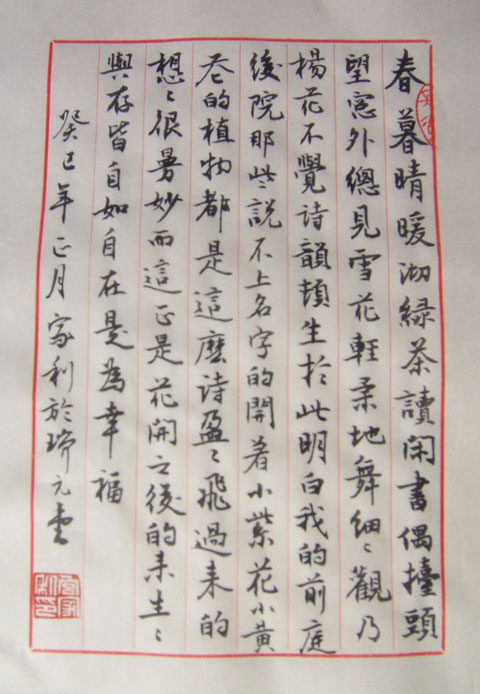 春暮晴暖沏綠茶讀閑書偶擡頭
望窓外總見雪花輕柔地舞細〻觀乃
楊花不覺詩韻頓生於此明白我的前庭
後院那些說不上名字的開着小紫花小黃
花的植物都是這麽詩盈〻飛過来的
想〻很曼妙而這正是花開之後的未生〻
與存皆自如自在是為幸福
癸巳年正月家利於瑞元堂